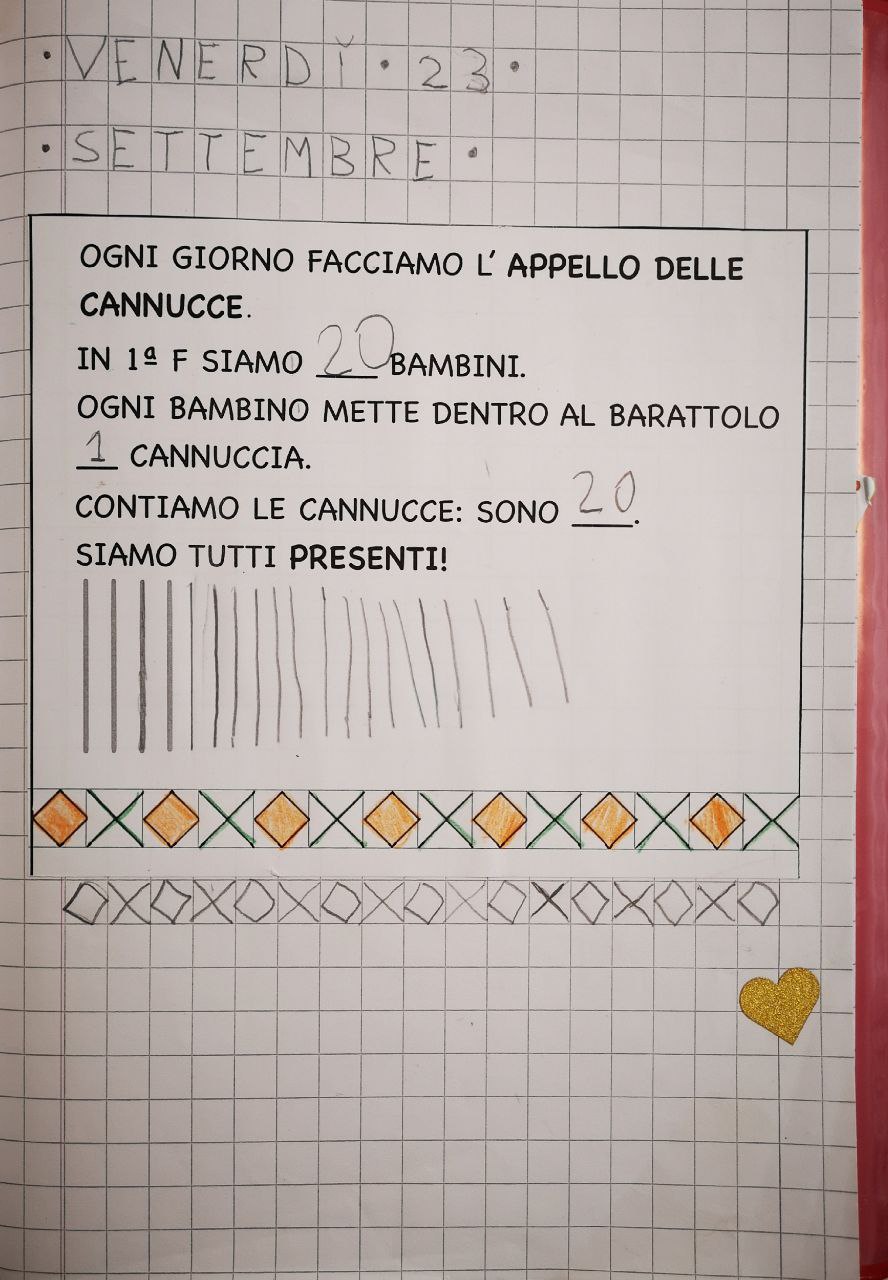 • VENERDÌ • 23 •
• SETTEMBRE •
OGNI GIORNO FACCIAMO L' APPELLO DELLE
CANNUCCE.
IN 1ª F SIAMO 20 BAMBINI.
OGNI BAMBINO METTE DENTRO AL BARATTOLO
1 CANNUCCIA.
CONTIAMO LE CANNUCCE: SONO 20.
SIAMO TUTTI PRESENTI!